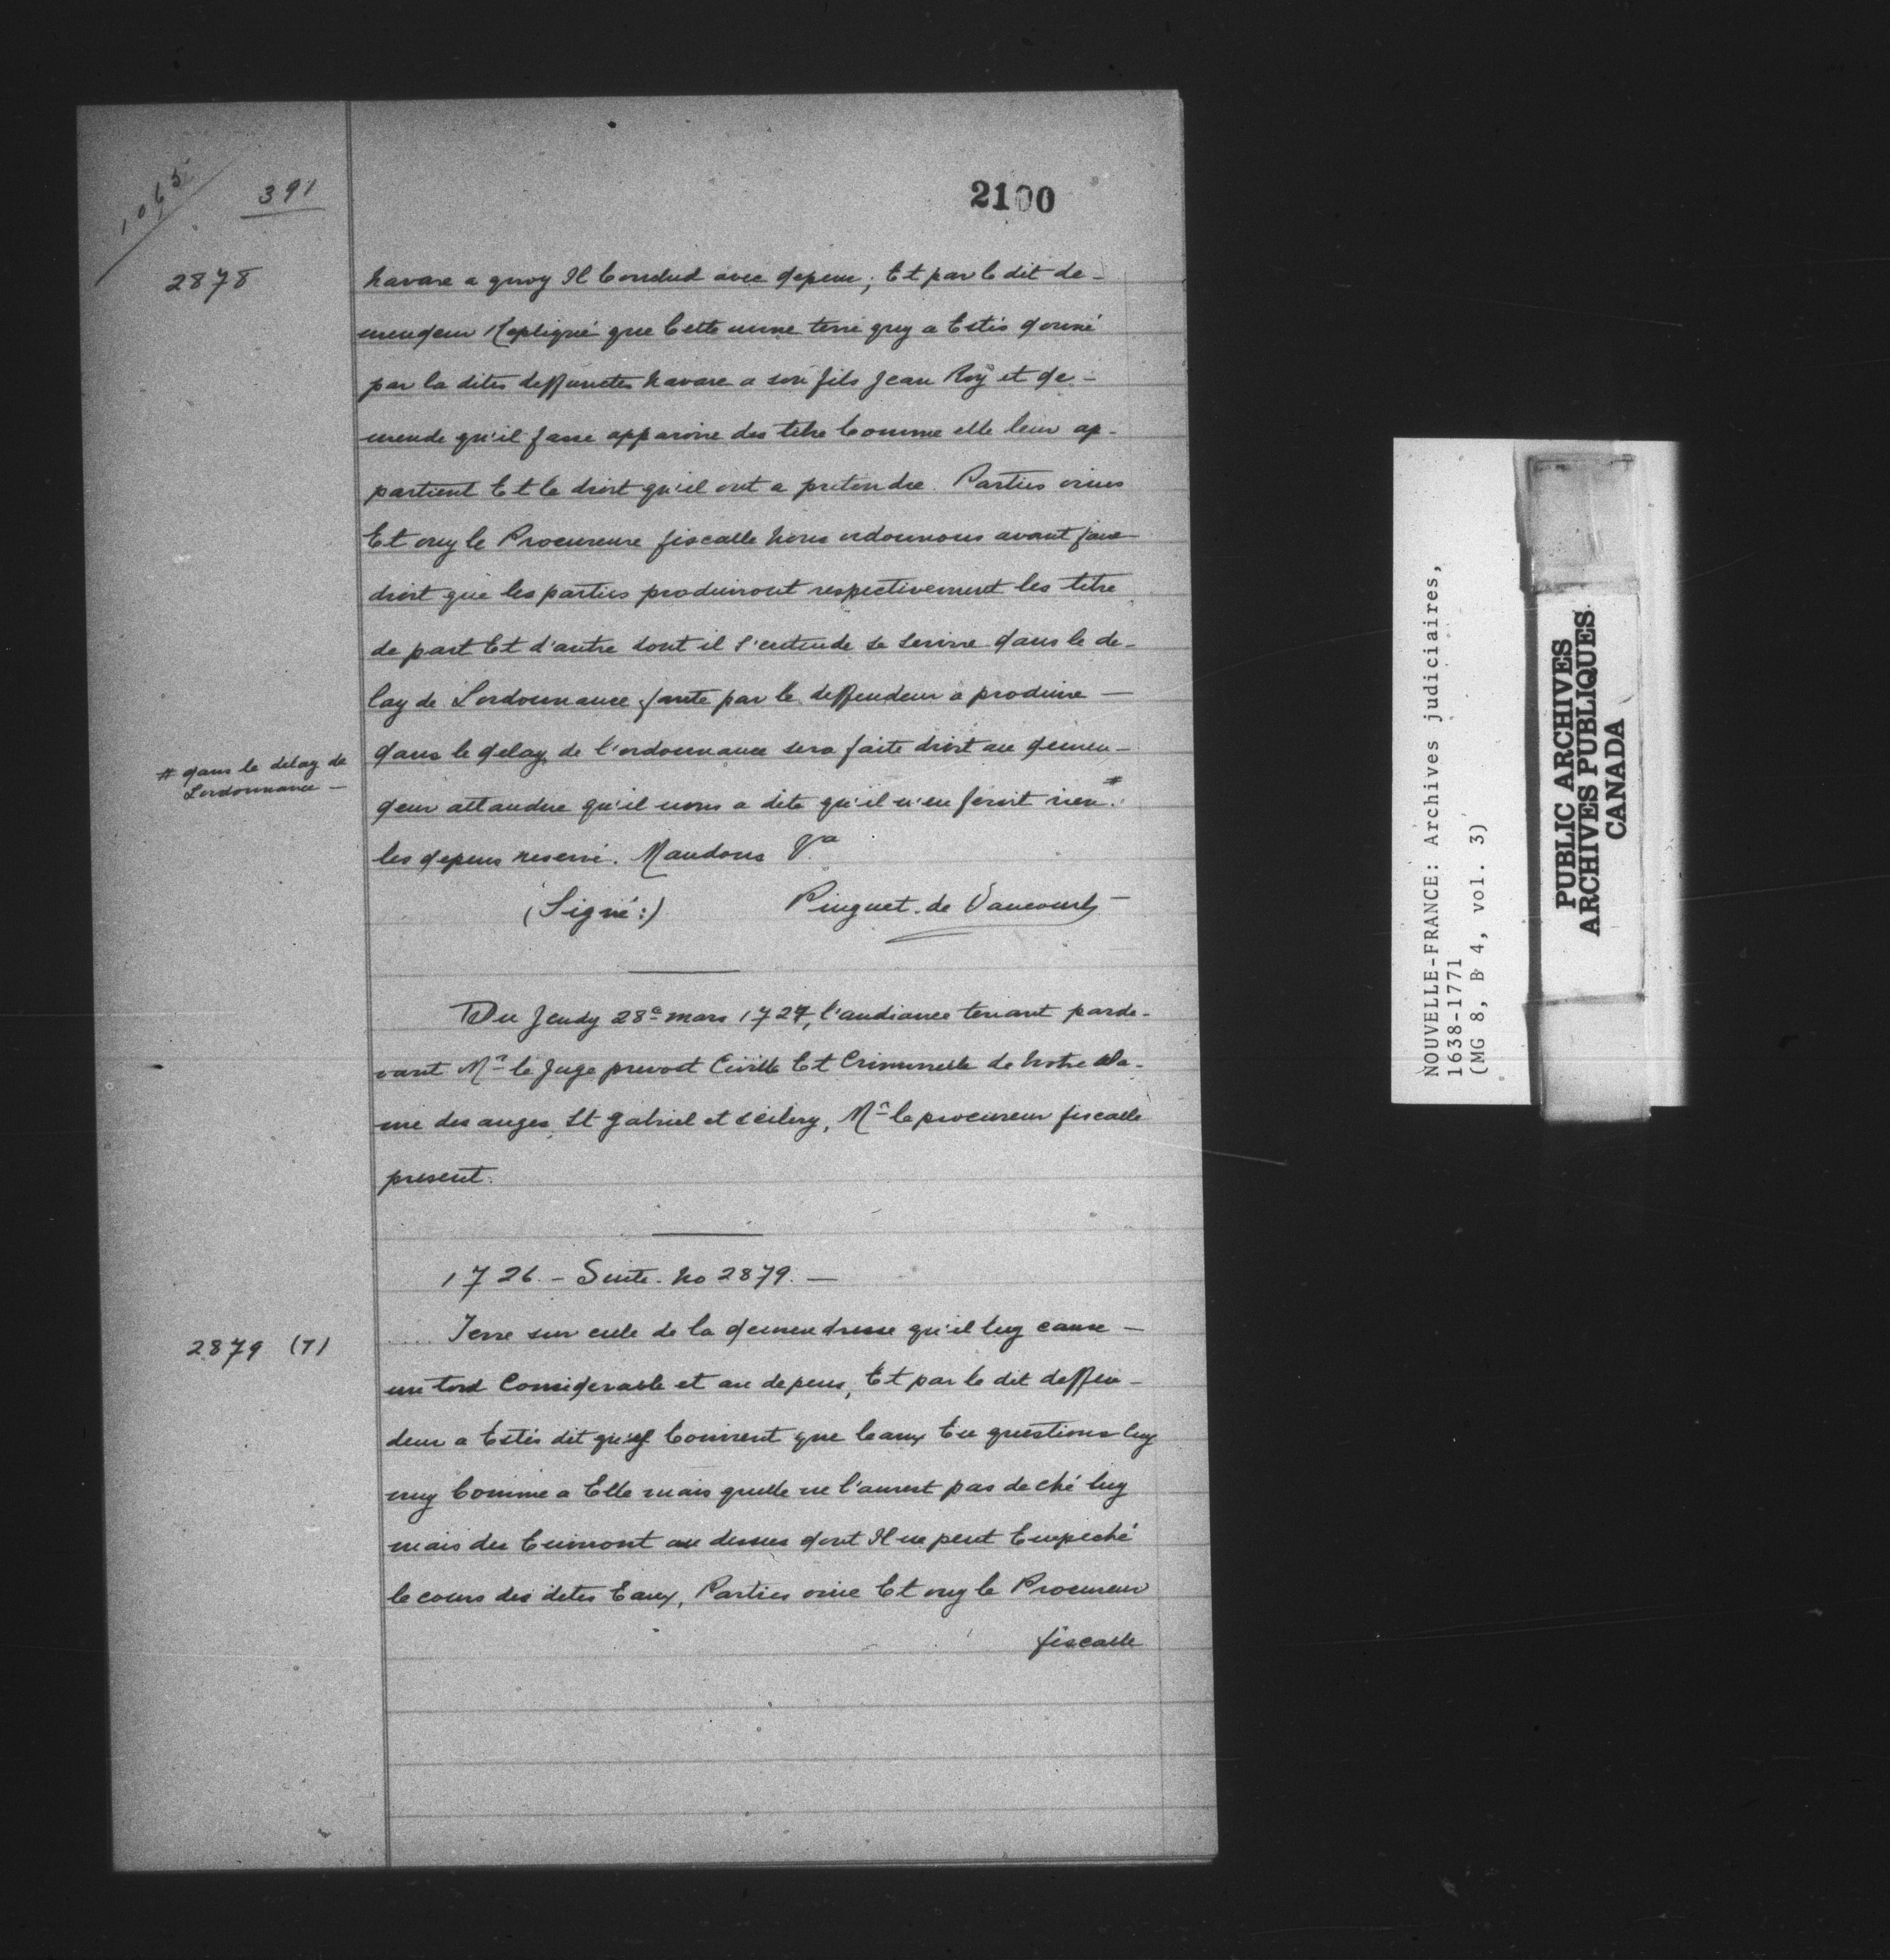 1065
391
2100
2878
havare a quoy Il Conclud avec depens; Et par le dit de-
mendeur Repliqué que Cette mime terre quy a Estés donné
par la dites deffunctes havare a son fils Jean Roÿ et de-
mende qu'il fasse apparoire des titre Comme elle leur ap-
partient Et le droit qu'il ont a pretendre. Parties ouies
Et ouy le Procureure fiscalle Nous ordonnons avant faire
droit que les parties produiront respectivement les titre
de part Et d'autre dont il s'entende se servire dans le de-
lay de Lordonnance, faute par le deffendeur a produire —
dans le delay de l'ordonnance sera faite droit au demen-
deur attandue qu'il nous a dite qu'il n'en feroit rien #.
# dans le délay de
Lordonnance —
les depens reservé. Mandons &a
(Signé:) Pinguet de Vaucourts —
Du Jeudy 28e mars 1727, l'audiance tenant parde-
vant Mr le Juge prevost Civille Et Criminelle de Notre Da-
me des anges, St gabriel et scilery, Mr le procureur fiscalle
present.
1726. - Suite. No 2879. —
2879 (7)
.... Terre sur celle de la demendresse qu'il luy cause —
un tord Considerable et au depens, Et par le dit deffen-
deur a Estés dit qu'il Convient que Leaux En questions luy
nuy Comme a Elle mais quelle ne l'aurent pas de ché luy
mais des Environt au dessus dont Il ne peut Empeché
le cours des dites Eaux, Parties ouie Et ouy le Procureur
fiscalle
NOUVELLE-FRANCE: Archives judiciaires,
1638-1771
(MG 8, B 4, vol. 3)
PUBLIC ARCHIVES
ARCHIVES PUBLIQUES
CANADA